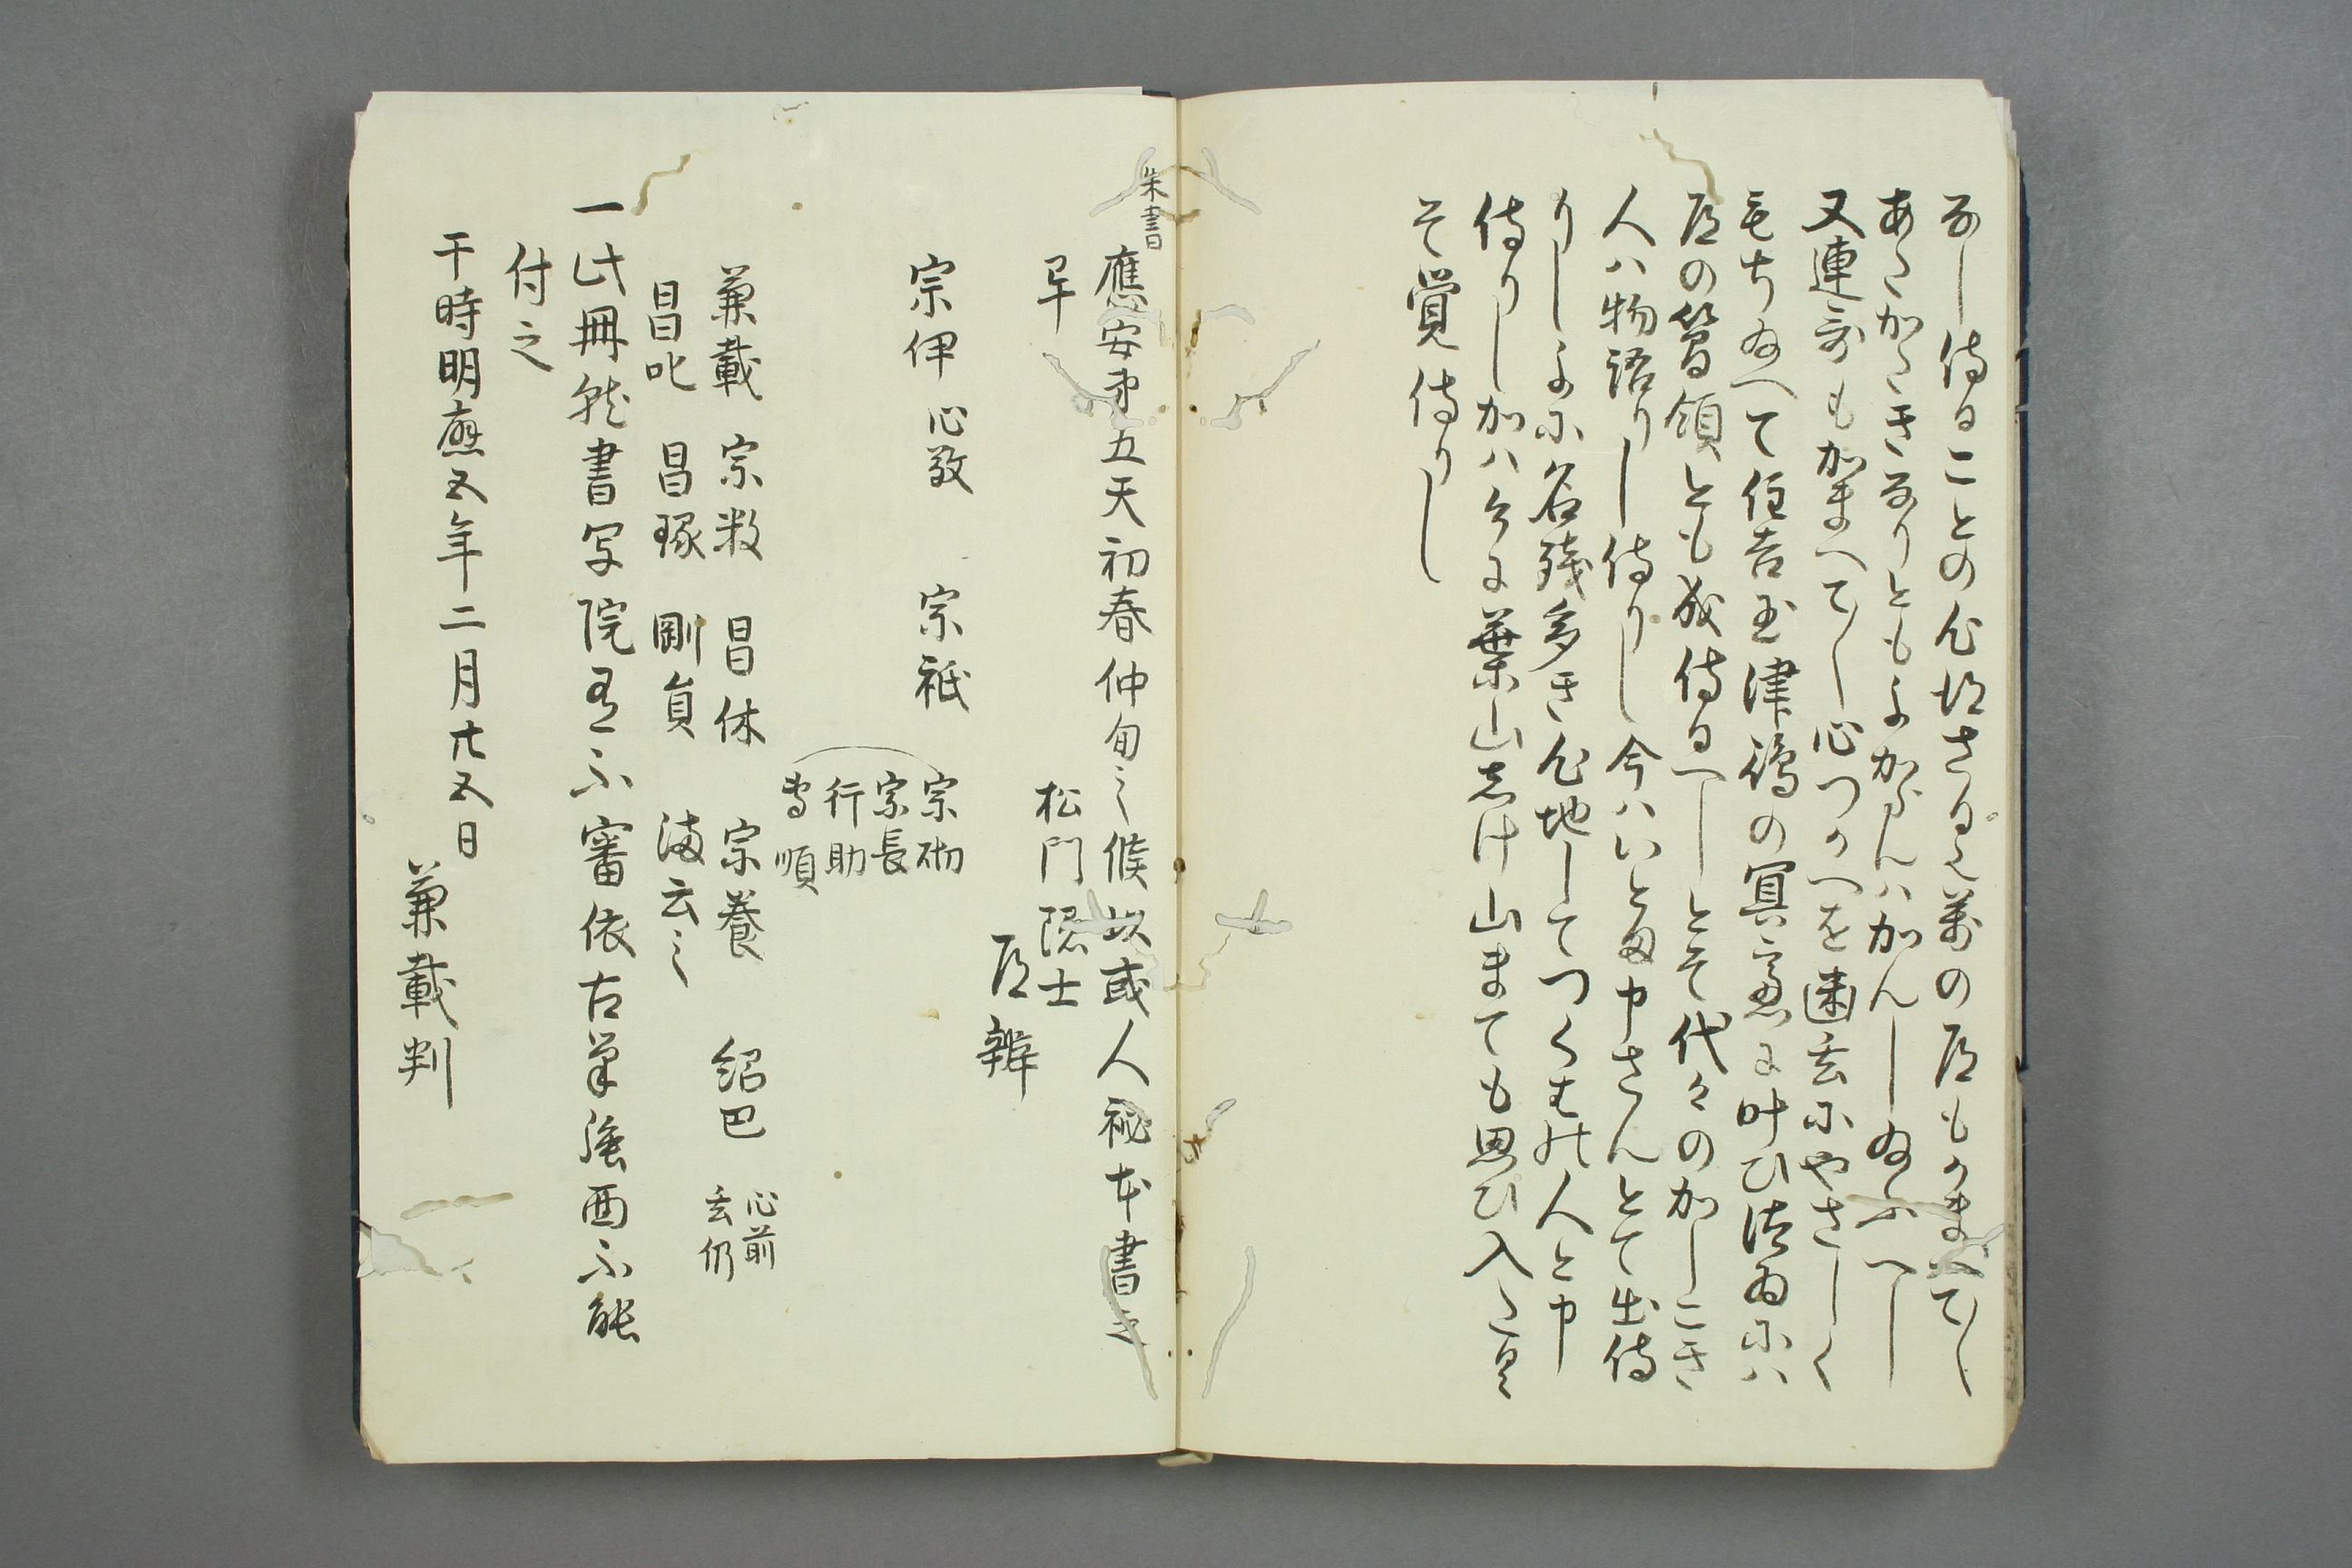 なし侍ることの心得さる人萬の道もかまへてし
あしかるきなりともよからんハかんし給ふへし
又連哥もかまへてし心つかへを幽玄にやさしく
もちゐへて住吉玉津嶋の冥慮に叶ひ侍るにハ
道の管領とも成侍るへしとそ代々のかしこき
人ハ物語りし侍りし今ハいとま申さんとて出侍
りしよに名残多き心地してつくは北人と申
侍りしかハ今に葉山しけ山まても思ひ入こと
そ覚侍りし
朱書
應安第五天初春仲旬之候以或人秘本書之
早
松門隠士
道辨
宗伊 心敬 宗祇
宗砌
宗長
行助
専順
兼載 宗牧 昌休 宗養 紹巴 心前
玄仍
昌叱 昌琢 剛貞 満云之
一此冊雖書写院有不審依古筆強而不能
付之
干時明應五年二月廿五日
兼載判